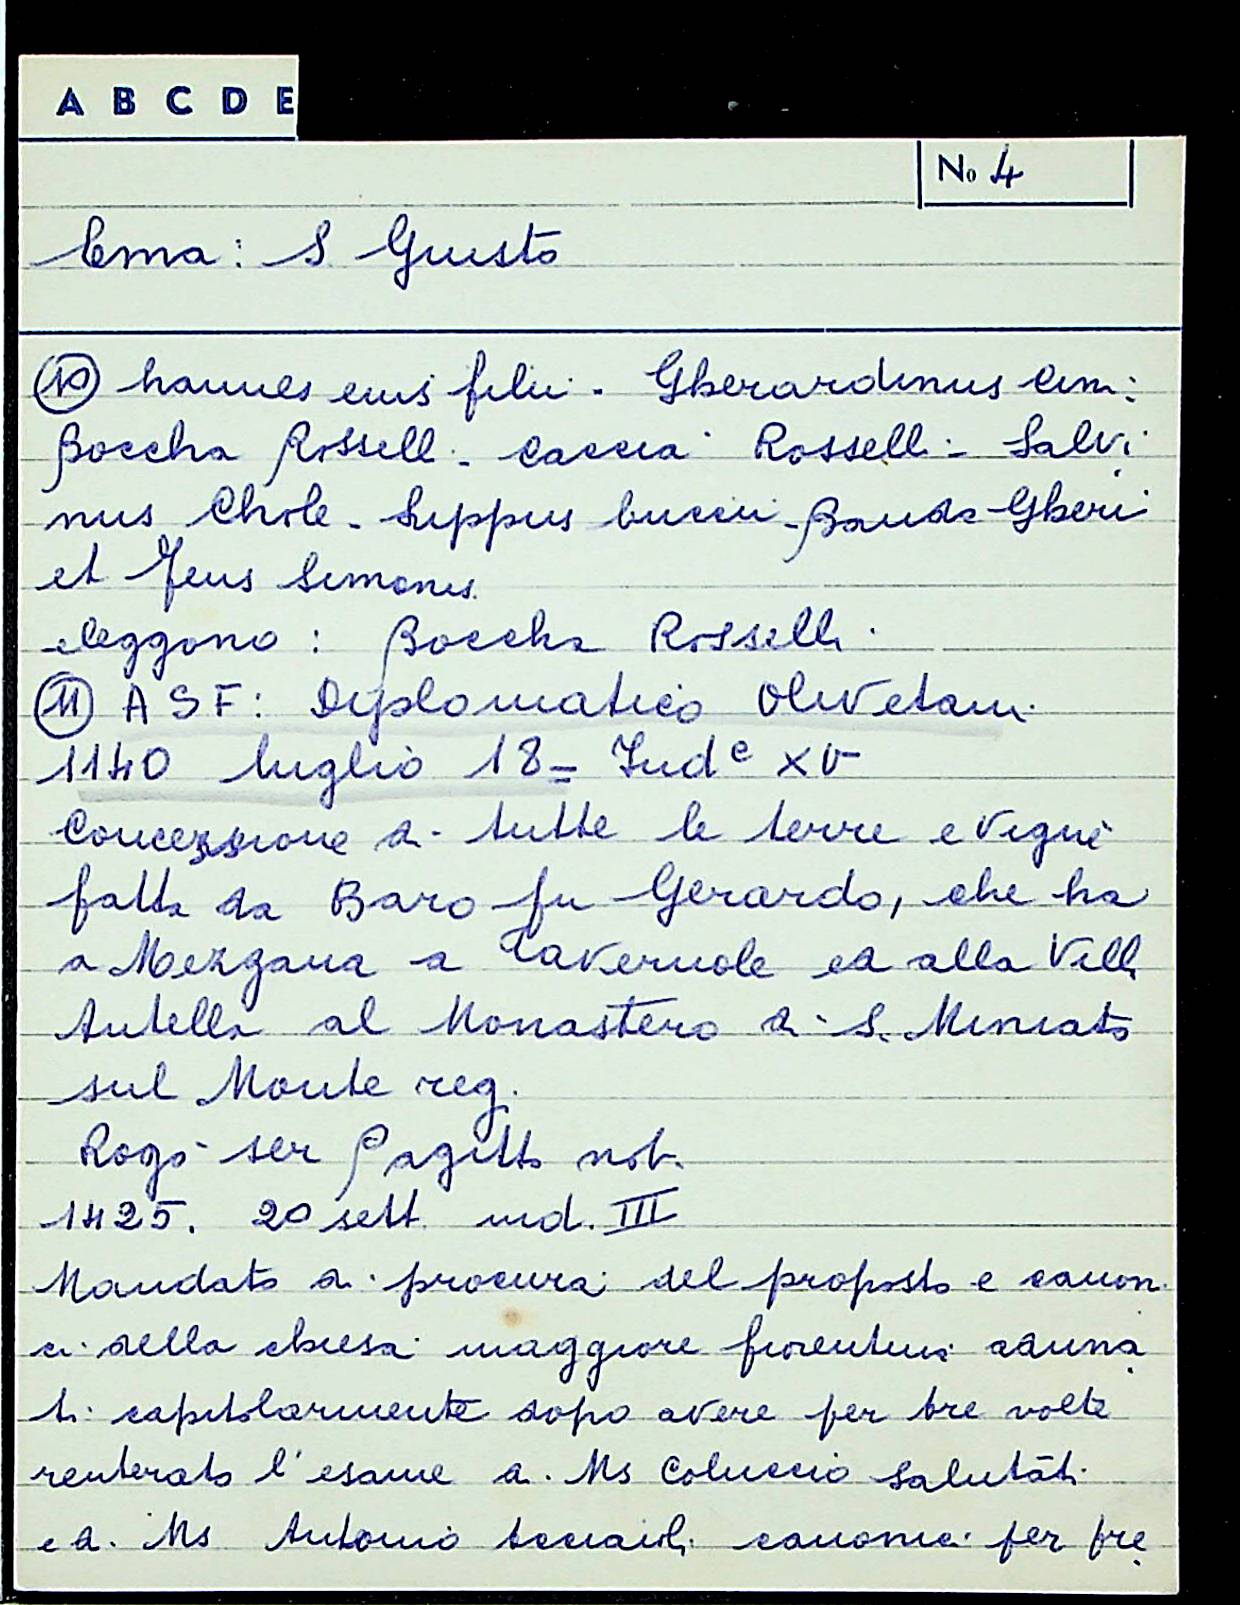 A B C D E
No 4
Ema: S. Giusto
(10) hannes eius filii - Gherardinus Cim:
Boccha Rosselli - Caccia Rosselli - Salvi
nus Chole - Lippus bucci - Banda Gheri
et Jeus Simonis
eleggono: Boccha Rosselli.
(11) ASF: Diplomatico Olivetani
1140 luglio 18 = Indᵉ XV
Concessione di tutte le terre e vigne
fatta da Baro fu Gerardo, che ha
a Mezzana a Tavernole ed alla Villa
Antella al Monastero di S. Miniato
sul Monte reg.
Rogò ser Pagitto not.
1425. 20 sett. ind. III
Mandato di procura del proposto e canon
ci della chiesa maggiore fiorentina aduna
ti capitolarmente dopo avere per tre volte
reiterato l'esame di Ms Coluccio Salutati
e di Ms Antonio Acciaioli canonici per pre